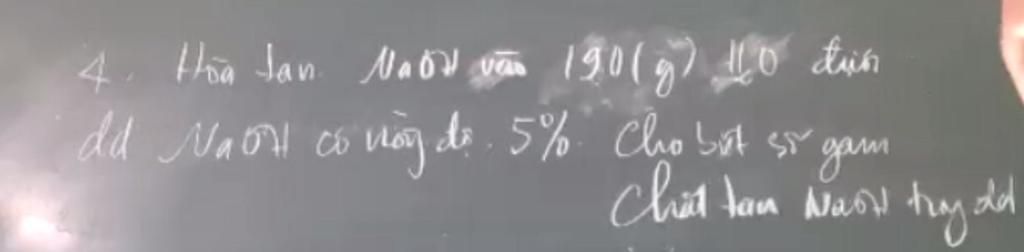 4. Hòa tan NaOH vào 190(g) H₂O được
dd NaOH có nồng độ 5%. Cho biết số gam
chất tan NaOH trong dd